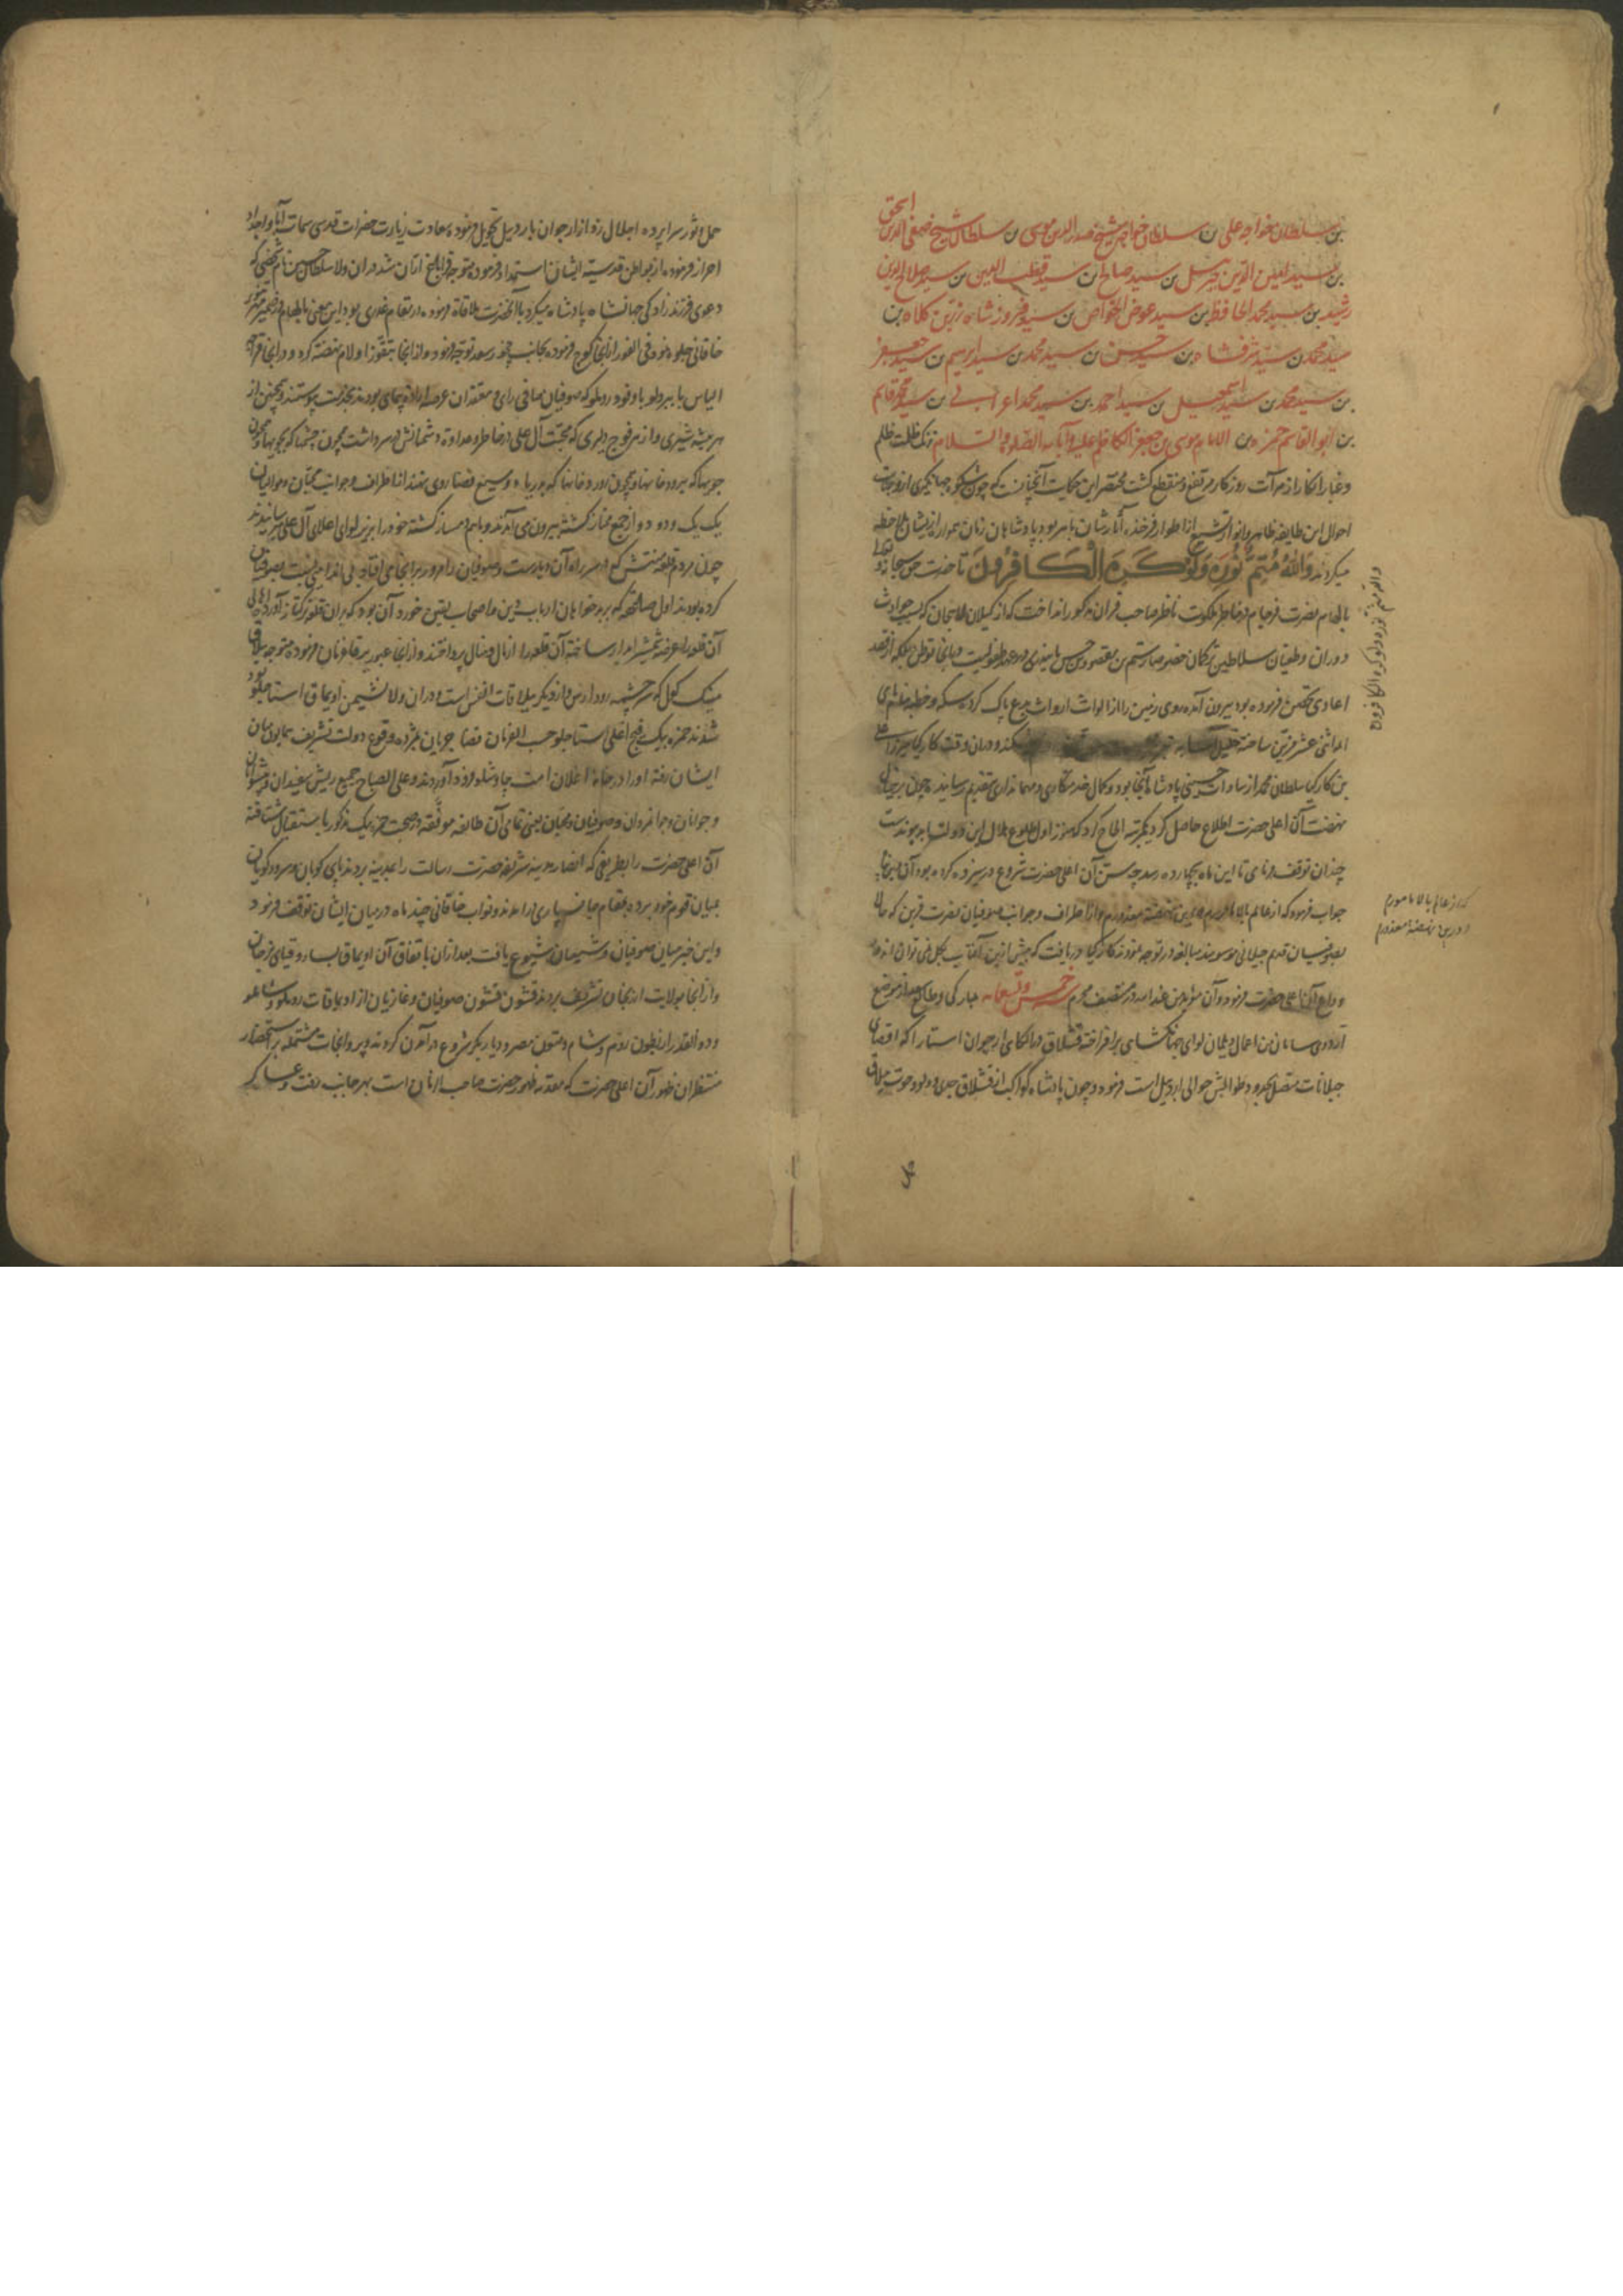 بن سلطان خواجه علی بن سلطان خواجه شیخ صدر الدین موسی بن سلطان شیخ صفی الدین اسحق
بن سید امین الدین جبرئیل بن سید صالح بن سید قطب الدین بن سید صلاح الدین
رشید بن سید محمد الحافظ بن سید عوض الخواص بن سید فیروز شاه زرین کلاه بن
سید محمد بن سید شرفشاه بن سید حسن بن سید محمد بن سید ابراهیم بن سید جعفر
بن سید محمد بن سید اسمعیل بن سید احمد بن سید محمد اعرابی بن سید محمد قاسم
بن ابو القاسم حمزه بن الامام موسی بن جعفر الکاظم علیه و آبائه الصلوة والسلام زنک ظلمت ظلم
و غبار انکار از مرآت روزکار مرتفع و منقطع کشت مختصر این حکایت آنچنانست که چون شکوه جهانکیری از وجنات
احوال این طایفه ظاهر و انوار از اطوار فرخنده آثارشان باهر بود پادشاهان زمان همواره از ایشان ملاحظه
میکردند والله متم نوره ولو کره الکافرون تا حضرت حق سبحانه و تعالی
بالهام نصرت فرجام در خاطر ملکوت ناظر صاحب قران مذکور انداخت که از کیلان لاهیجان که بسبب حوادث
دوران و طغیان سلاطین ترکمان خصوصا رستم بن مقصود بن حسن بایندری در عهد طفولیت در آنجا توطن بلکه از قصد
اعادی تحصن فرموده بود بیرون آمده روی زمین را از الواث پاک کرده سکه و خطبه بنام نامی
ائمه اثنی عشر مزین ساخته کند و در آن وقت کارکیا میرزا علی
بن کارکیا سلطان محمد از سادات حسینی پادشاه آنجا بود و کمال خدمتکاری و مهمانداری بتقدیم رسانیده چون بر
نهضت آن اعلی حضرت اطلاع حاصل کرد الحاح کرد که هنوز اول طلوع هلال این دولت ابد پیوندست
چندان توقف فرمای تا این ماه بچهارده رسد چه سن آن اعلی حضرت شروع در سیزده کرده بود آن
جواب فرمود که از عالم بالا مامورم و در این نهضت معذورم و از اطراف و جوانب صوفیان نصرت قرین که حالا
بصوفیان قدیم جیلانی موسومند مبالغه در توجه نمودند کارکیا دریافت که بیش از این آفتاب بکل نمی توان اندود
وداع آن اعلی حضرت فرمود و آن مؤید من عند الله در منتصف محرم خمس و تسعمایه بمبارکی و طالع سعد از موضع
از اعمال دیلمان لوای جهانکشای برافراخته قشلاق در الکای ارجوان استارا که اقصای
جیلانات متصل بحدود طوالش حوالی اردبیل است فرمود و چون پادشاه کواکب از قشلاق جدی و دلو و حوت به ییلاق
حمل
والله متم نوره ولو کره الکافرون
که از عالم بالا مامورم
و در این نهضت معذورم
حمل و ثور سراپرده اجلال زد از ارجوان باردبیل تحویل فرمود بسعادت زیارت حضرات قدسی سمات آبا و اجداد
احراز فرموده از بواطن قدسیه ایشان استمداد فرموده متوجه قراباغ اران شد در آن ولا سلطان حسین نام شخصی که
دعوی فرزندزادکی جهانشاه پادشاه میکرد با آنحضرت ملاقاة نموده در مقام غدر می بود این معنی بالهام در ضمیر منیر
خاقانی جلوه نمود فی الفور از آنجا کوچ فرموده بجانب چخور سعد توجه فرمود و از آنجا نهضت کرد و در آنجا قراجه
الیاس بایبردلو با وفود روملو که صوفیان صافی رای و معتقدان عرصه ارادت پیمای بودند بخدمت پیوستند و همچنین از
هر بیشه شیری و از هر فوج دلیری که محبت آل علی در خاطر و عداوت دشمنانش در سر داشت همچون چشمها که بجویها و همچون
جویها که برودخانها و همچون رودخانها که بدریا روی نهند از اطراف و جوانب محبان و موالیان
یک یک و دو دو از جمع ممتاز کشته بیرون می آمدند و با هم دمساز کشته خود را بزیر لوای اعلای آل علی میرسانیدند
چون مردم قلعه منتش که در سر راه آن دیارست و صوفیان را مرور بر آنجا می افتاد بی اندامی نسبت بصوفیان
کرده بودند اول که بر بدخواهان ارباب دین و اصحاب یقین خورد آن بود که بر آن قلعه ترکتاز آورد اهالی
آن قلعه را عرضه شمشیر آبدار ساخته آن قلعه را از مال و منال پرداختند و از آنجا عبور بترجان فرموده متوجه ییلاق
مینک کول که سرچشمه رود ارس و از دیکر ییلاقات انفس است و در آن ولا نشیمن اویماق استاجلو بود
شدند حمزه بیک فتح اغلی استاجلو حسب الفرمان قضا جریان مژده وقوع دولت تشریف همایون بمیان
ایشان رفته او را در خانه اغلان امت چاوشلو فرود آوردند و علی الصباح جمیع ریش سفیدان و پیشوایان
و جوانان و جوانمردان و صوفیان و محبان یعنی تمامی آن طائفه موفقه در صحبت حمزه بیک مذکور باستقبال شتافته
آن اعلی حضرت را بطریقی که انصار مدینه شریفه حضرت رسالت را بمدینه بردند پای کوبان و سرودکویان
بمیان قوم خود برده بمقام جانسپاری در آمدند و نواب خاقانی چند ماه در میان ایشان توقف فرمود
و این خبر میان صوفیان و شیعیان شیوع یافت بعد از آن باتفاق آن اویماق بسارو قیای ترجان
و از آنجا بولایت ارزنجان تشریف بردند قشون قشون صوفیان و غازیان از اویماقات روملو و شاملو
و ذوالقدر از بطون روم و شام و متون مصر و دیار بکر شروع در آمدن کردند و پروانجات مشتمله بر استحضار
منتظران ظهور آن اعلی حضرت که مقدمه ظهور حضرت صاحب الزمان است بهر جانب رفت و عساکر